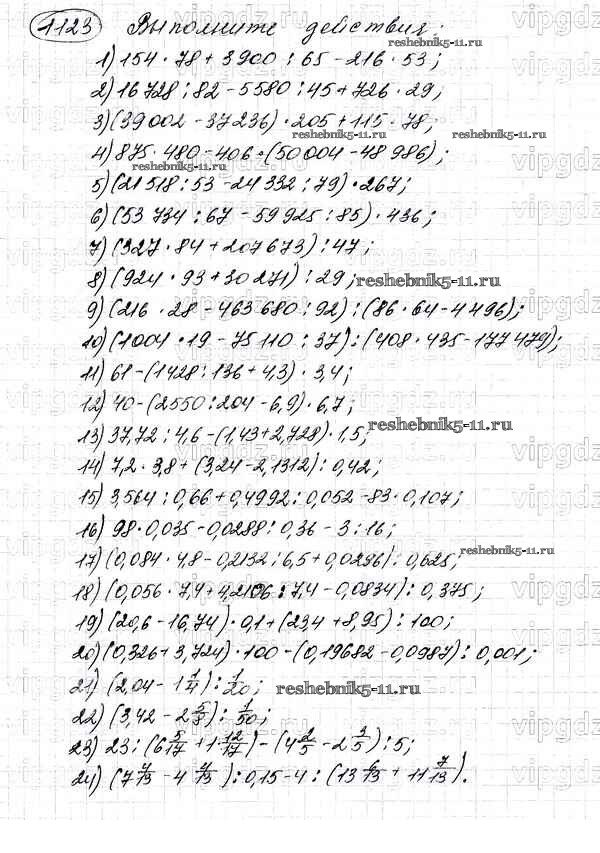 1123 Выполните действия:
reshebnik5-11.ru
1) 154 · 78 + 3900 : 65 - 216 · 53;
2) 16728 : 82 - 5580 : 45 + 726 · 29;
3) (39002 - 37236) · 205 + 115 · 78;
reshebnik5-11.ru reshebnik5-11.ru
4) 875 · 480 - 406 · (50004 - 48986);
reshebnik5-11.ru
5) (21518 : 53 - 24332 : 79) · 267;
6) (53734 : 67 - 59925 : 85) · 436;
7) (327 · 84 + 207673) : 47;
8) (924 · 93 + 30271) : 29; reshebnik5-11.ru
9) (216 · 28 - 463680 : 92) : (86 · 64 - 4496);
10) (1004 · 19 - 75110 : 37) : (408 · 435 - 177479);
11) 61 - (1428 : 136 + 4,3) · 3,4;
12) 40 - (2550 : 204 - 6,9) · 6,7;
reshebnik5-11.ru
13) 37,72 : 4,6 - (1,43 + 2,728) · 1,5;
14) 7,2 · 3,8 + (3,24 - 2,1312) : 0,42;
15) 3,564 : 0,66 + 0,4992 : 0,052 - 83 · 0,107;
16) 98 · 0,035 - 0,0288 : 0,36 - 3 : 16;
17) (0,084 · 4,8 - 0,2132 : 6,5 + 0,0296) : 0,625; reshebnik5-11.ru
18) (0,056 · 7,4 + 4,2106 : 7,4 - 0,0834) : 0,375;
19) (20,6 - 16,74) · 0,1 + (23,4 + 8,95) : 100;
20) (0,326 + 3,724) · 100 - (0,19682 - 0,0987) : 0,001;
21) (2,04 - 1 1/4) : 1/20; reshebnik5-11.ru
22) (3,42 - 2 5/8) : 1/50;
23) 23 : (6 5/17 + 1 12/17) - (4 2/5 - 2 2/5) : 5;
24) (7 4/13 - 4 4/13) : 0,15 - 4 : (13 6/13 + 11 7/13).